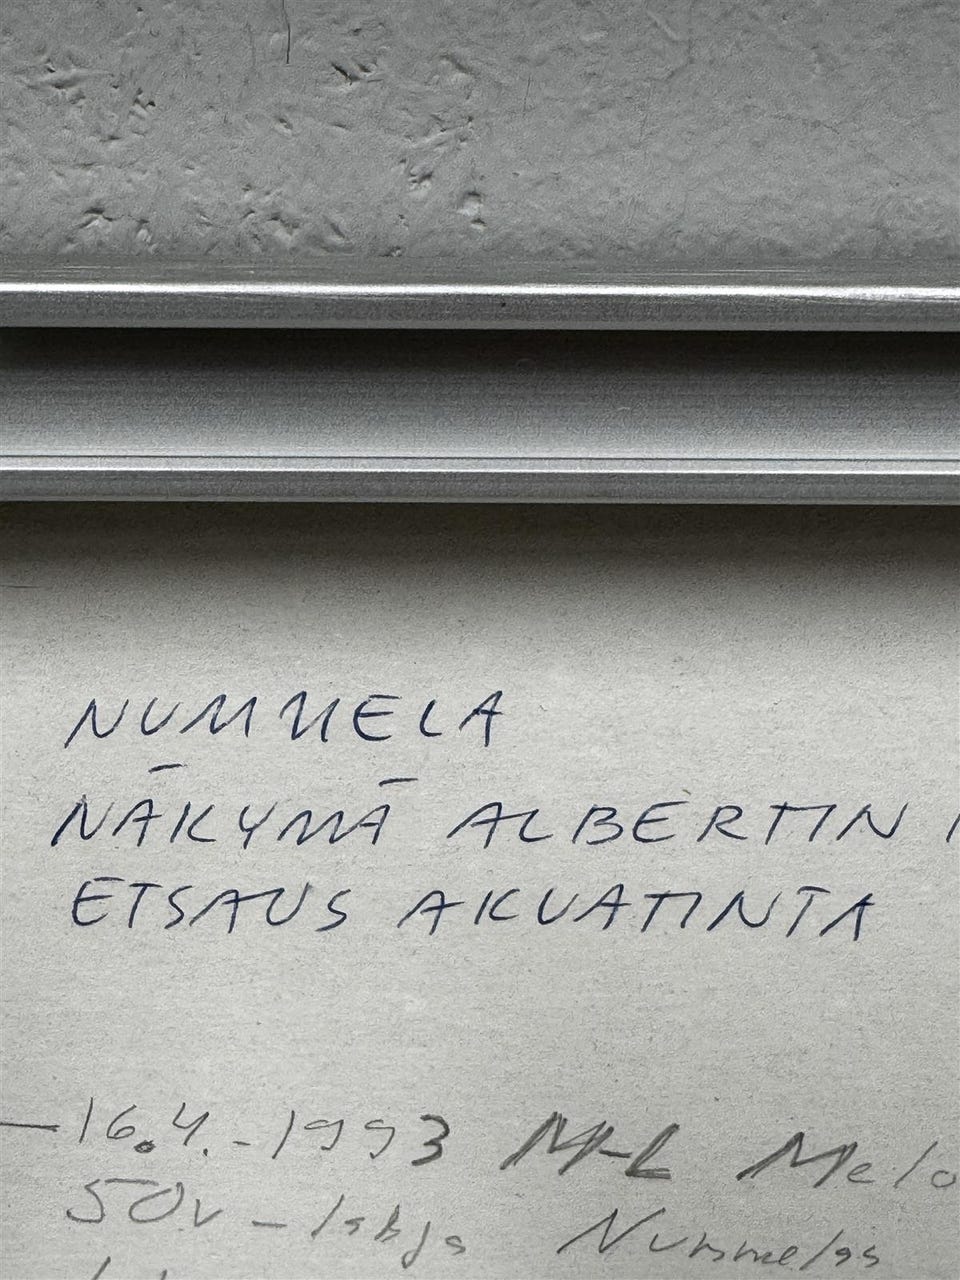 NUMMELA
NÄKYMÄ ALBERTIN
ETSAUS AKVATINTA
16.4.-1993 M-L Melo
50v - lahja Nummelas